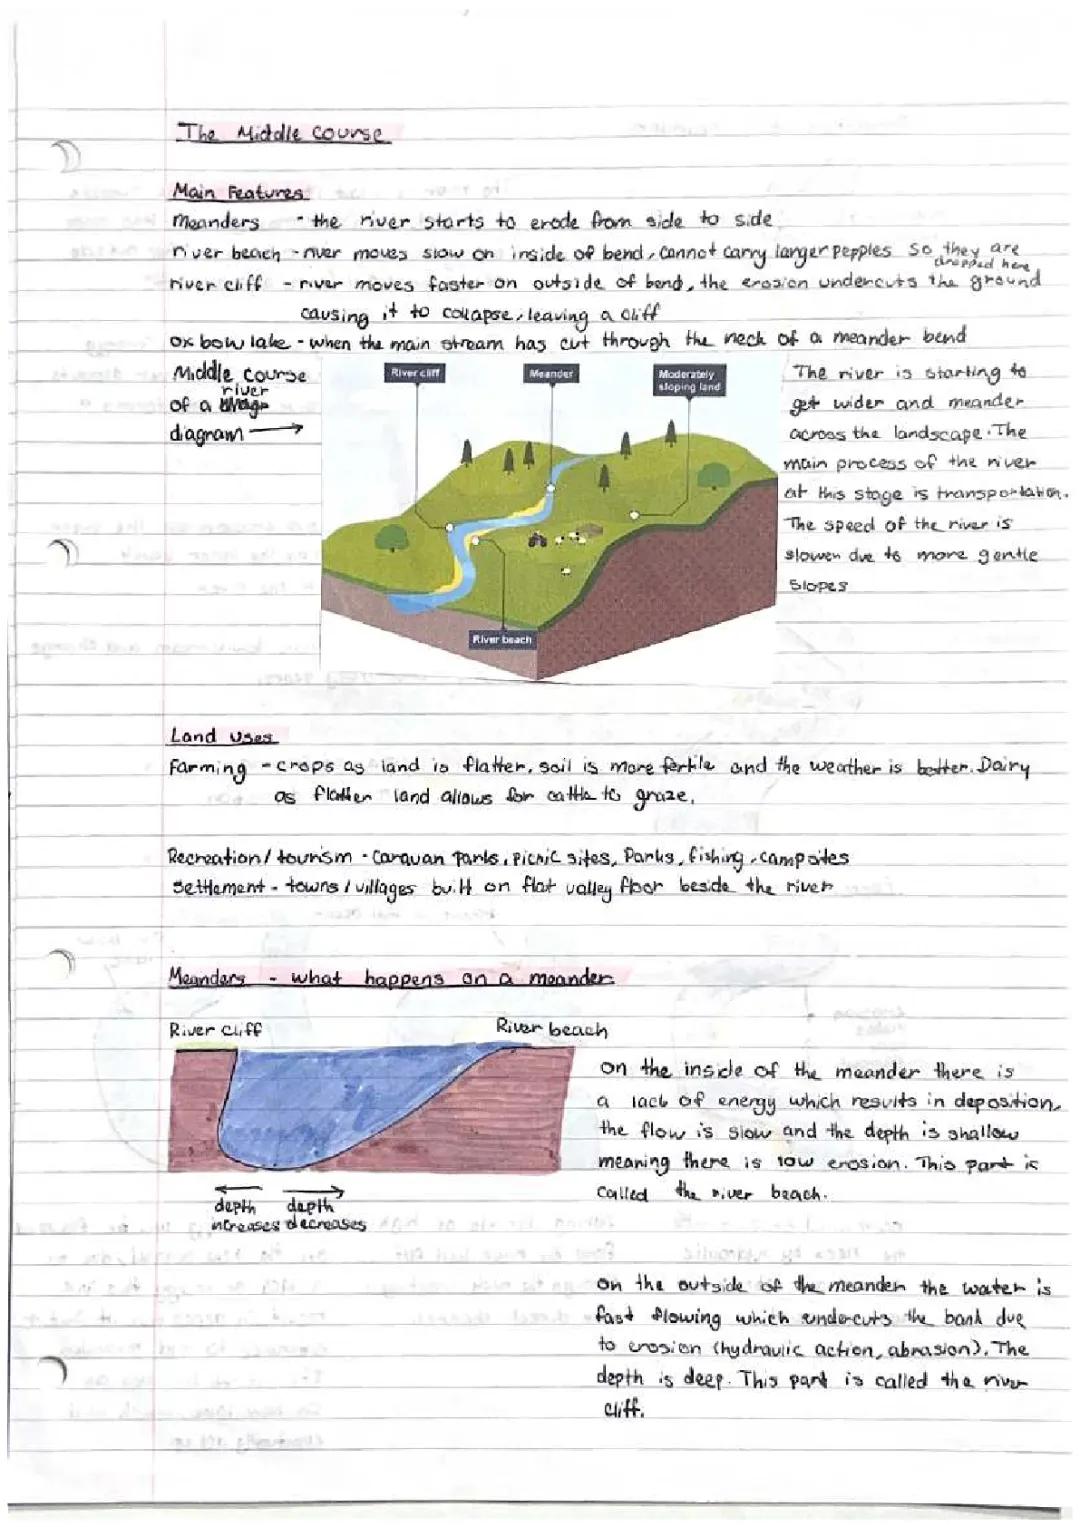 The Middle Course
Main Features
Meanders - the river starts to erode from side to side
river beach - river moves slow on inside of bend, cannot carry larger pepples so they are
dropped here
river cliff - river moves faster on outside of bend, the erosion undercuts the ground
causing it to collapse, leaving a cliff
ox bow lake - when the main stream has cut through the neck of a meander bend
Middle course
river
of a
diagram
River cliff
Meander
Moderately
sloping land
River beach
The river is starting to
get wider and meander
across the landscape. The
main process of the river
at this stage is transportation.
The speed of the river is
slower due to more gentle
slopes
Land Uses
Farming - crops as land is flatter, soil is more fertile and the weather is better. Dairy
as flatter land allows for cattle to graze.
Recreation / tourism - Caravan Parks, Picnic sites, Parks, fishing, campsites
Settlement - towns / villages built on flat valley floor beside the river
Meanders - what happens on a meander
River Cliff
River beach
depth
increases
depth
decreases
on the inside of the meander there is
a lack of energy which results in deposition,
the flow is slow and the depth is shallow
meaning there is low erosion. This part is
called the river beach.
on the outside of the meander the water is
fast flowing which undercuts the bank due
to erosion (hydraulic action, abrasion). The
depth is deep. This part is called the river
cliff.